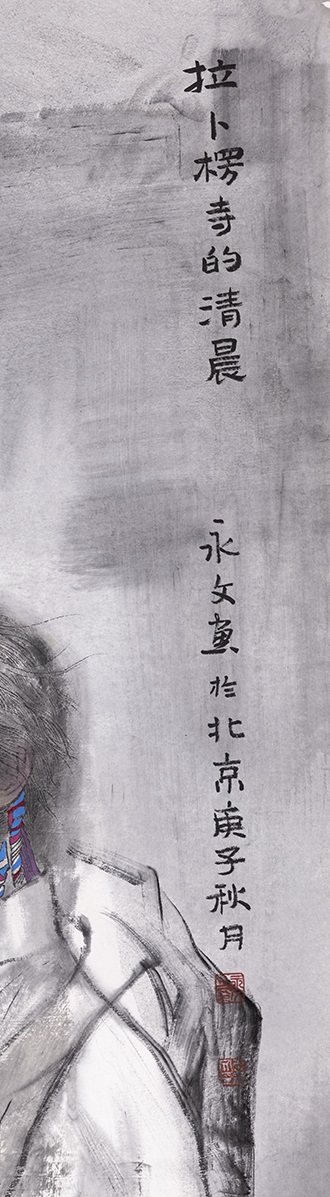 拉卜楞寺的清晨
永文画於北京庚子秋月